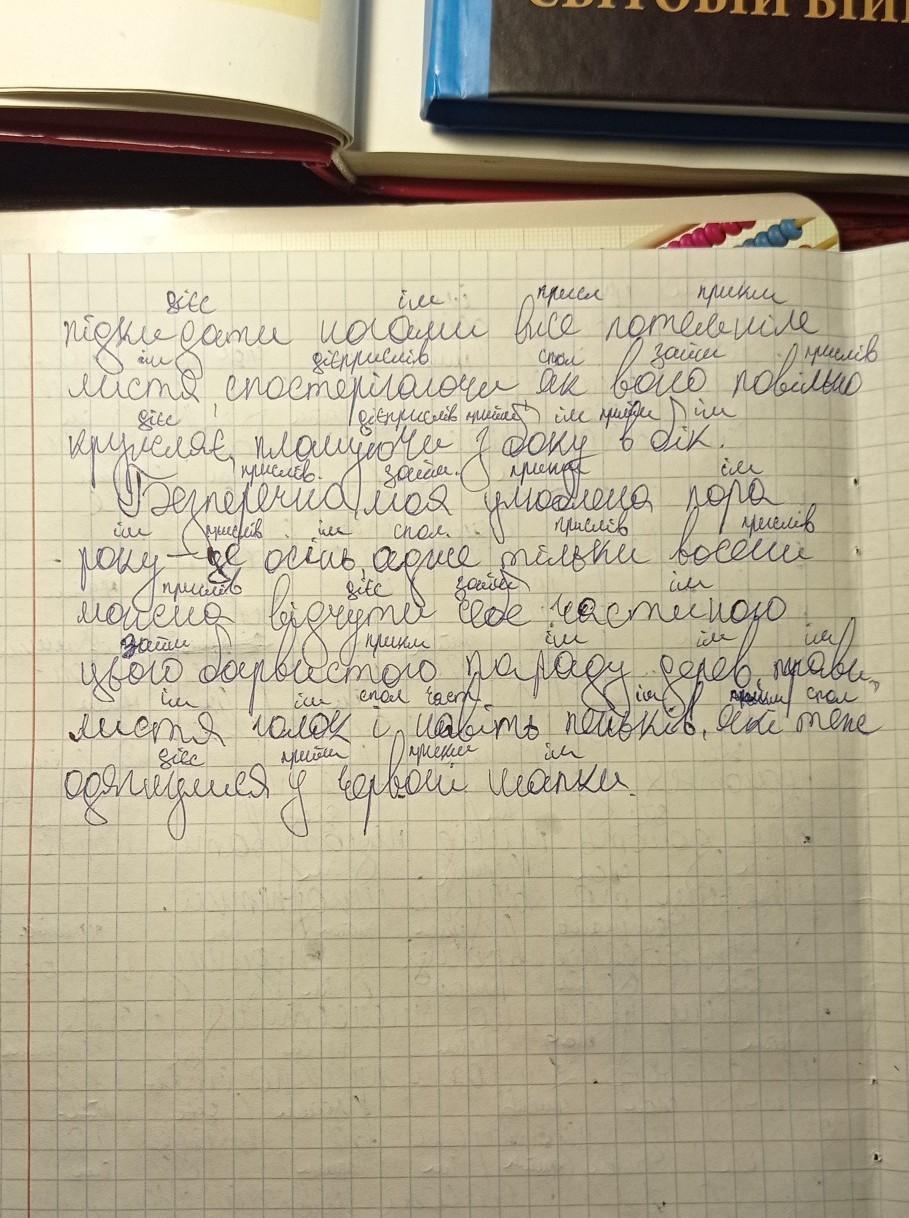 СВІТОВІЙ ВІЙ
дієс ім присл прикм
підкидати ногами вже потемніле
ім дієприслів спол займ прислів
листя, спостерігаючи як воно повільно
дієс дієприслів прийм ім прийм ім
кружляє, плануючи з боку в бік.
прислів. займ. прикм ім
Безперечна, моя улюблена пора
ім прислів ім спол. прислів прислів
року - це осінь, адже тільки восени
прислів дієс займ ім
можна відчути себе частиною
займ прикм ім ім ім
цього барвистого параду дерев, трави,
ім ім спол част ім спол
листя голок і навіть пеньків, які теж
дієс прийм прикм ім
одягнулися у червоні шапки.